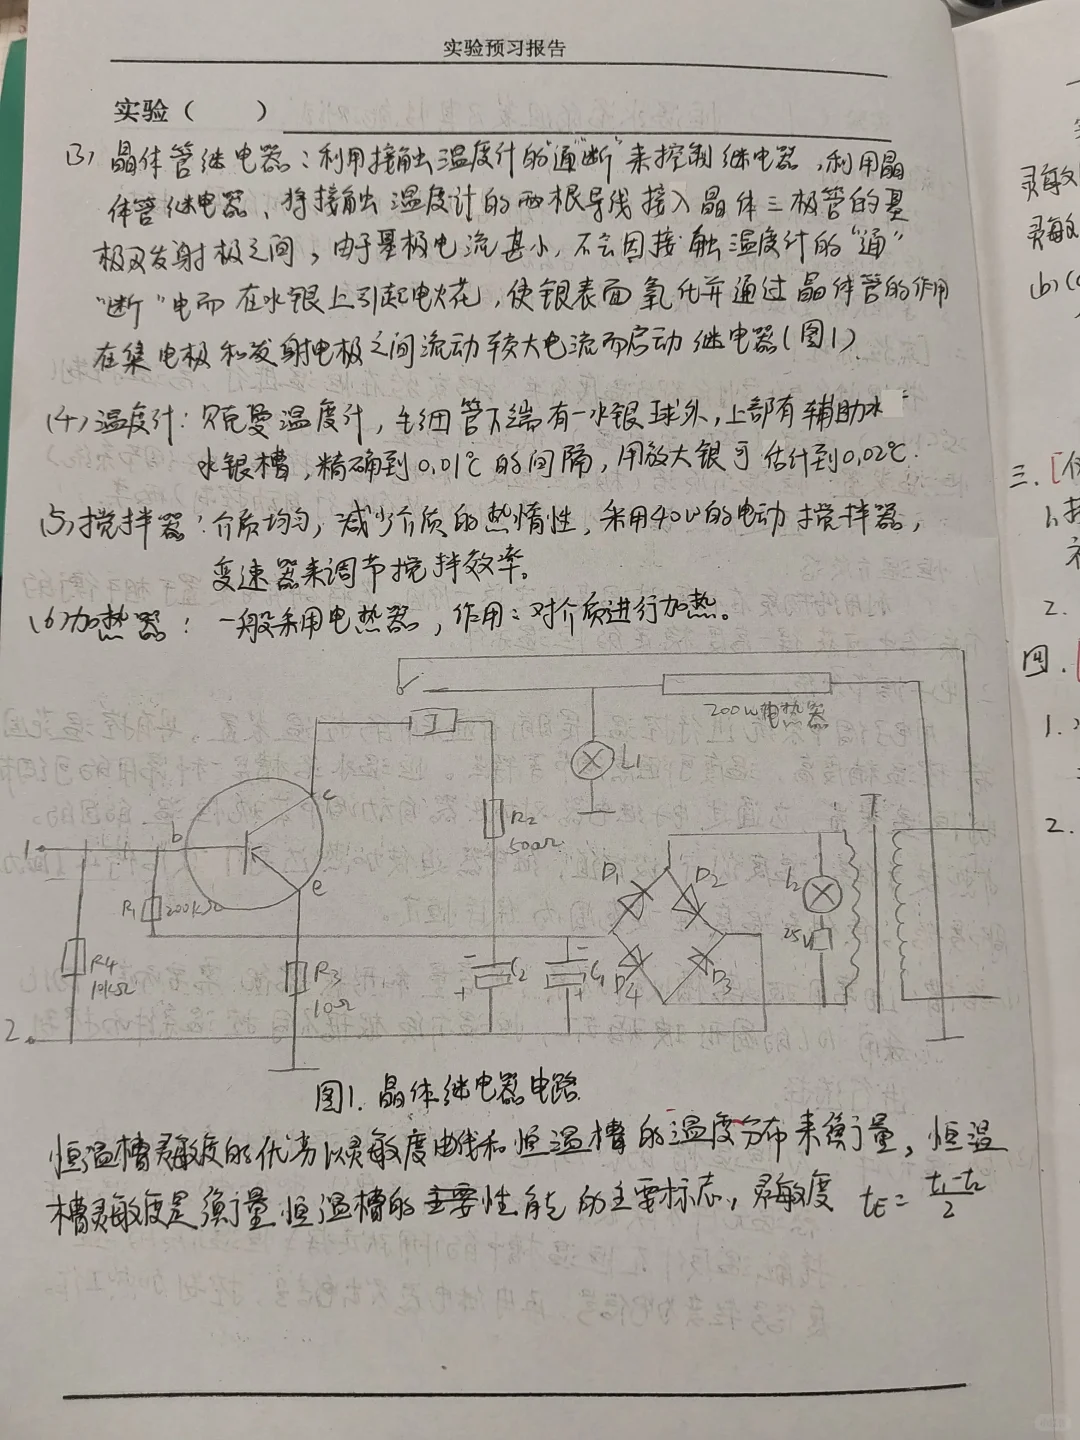 实验预习报告
实验（　　）
(3) 晶体管继电器：利用接触温度计的“通”“断”来控制继电器，利用晶
体管继电器、将接触温度计的两根导线接入晶体三极管的基
极及发射极之间，由于基极电流甚小，不会因接触温度计的“通”
“断”电而在水银上引起电火花，使银表面氧化并通过晶体管的作用
在集电极和发射电极之间流动较大电流而启动继电器(图1)
(4) 温度计：贝克曼温度计，毛细管下端有一水银球外，上部有辅助水
水银槽，精确到0.01℃的间隔，用放大银可估计到0.02℃.
(5) 搅拌器：介质均匀，减少介质的热惰性，采用40W的电动搅拌器，
变速器来调节搅拌效率。
(6) 加热器：一般采用电热器，作用：对介质进行加热。
200W电热器
J
L1
c
R2
500Ω
b
1
e
D1
D2
L2
R1
200kΩ
25V
R4
10kΩ
R3
10Ω
C2
C1
D4
D3
2.
图1. 晶体继电器电路
恒温槽灵敏度的优劣以灵敏度曲线和恒温槽的温度分布来衡量，恒温
槽灵敏度是衡量恒温槽的主要性能的主要标志，灵敏度 tE = (t1-t2)/2
灵敏
灵敏
(b)
三.
1.
2.
四.
1.
2.